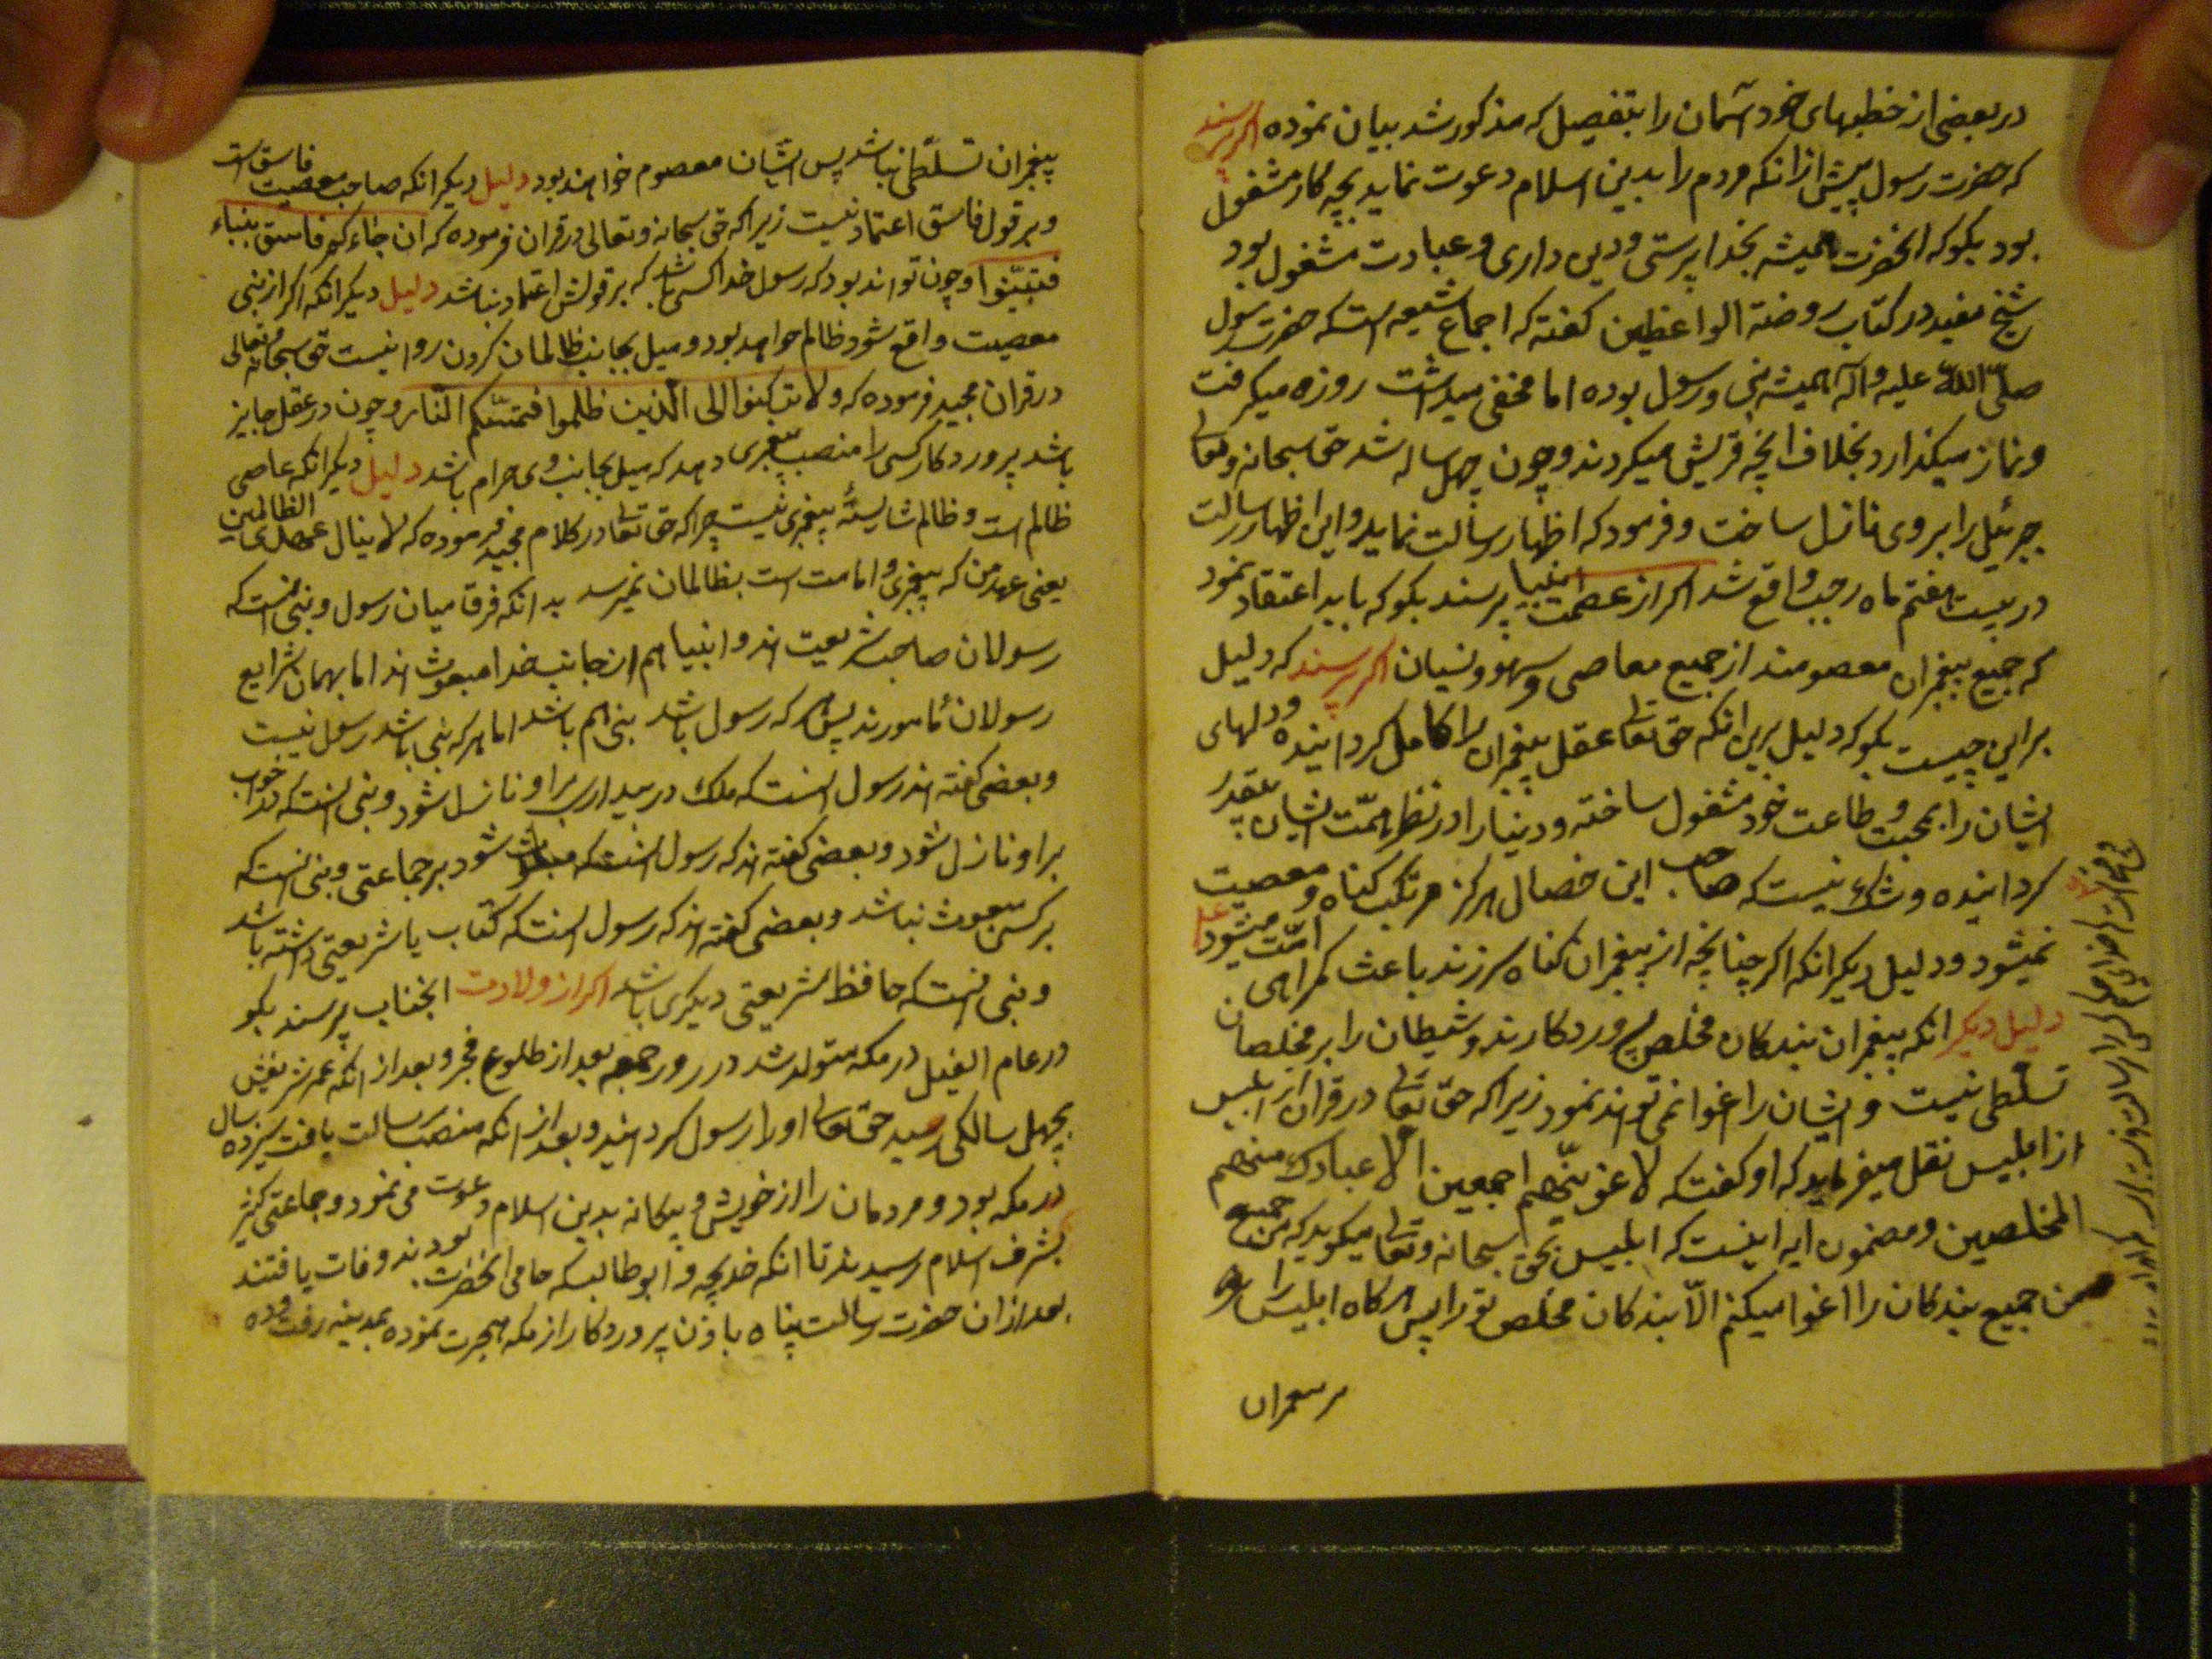 در بعضی از خطبهای خود آسمان را بتفصیل که مذکور شد بیان نموده اکر پرسند
که حضرت رسول پیش از انکه مردم را بدین اسلام دعوت نماید بچه کار مشغول
بود بکو که انحضرت همیشه بخدا پرستی و دین داری و عبادت مشغول بود
شیخ مفید در کتاب روضة الواعظین کفته که اجماع شیعه است که حضرت رسول
صلّی اللّه علیه و آله همیشه نبی و رسول بوده اما مخفی میداشت روزه میکرفت
و نماز میکذارد بخلاف انچه قریش میکردند و چون چهل ساله شد حق سبحانه و تعالی
جبرئیل را بر وی نازل ساخت و فرمود که اظهار رسالت نماید و این اظهار رسالت
در بیست هفتم ماه رجب واقع شد اکر از عصمت انبیا پرسند بکو که باید اعتقاد نمود
که جمیع پیغمبران معصومند از جمیع معاصی و سهو و نسیان اکر پرسند که دلیل
براین چیست بکو که دلیل برین انکه حق تعالی عقل پیغمبران را کامل کردانیده و دلهای
ایشان را بمحبت و طاعت خود مشغول ساخته و دینارا در نظر همّت ایشان بیقدر
کردانیده و شک نیست که صاحب این خصال هرکز مرتکب کناه و معصیت
نمیشود و دلیل دیکر انکه اکر چنانچه از پیغمبران کناه سرزند باعث کمراهی امّت میشود
دلیل دیکر انکه پیغمبران بندکان مخلص پروردکارند و شیطان را بر مخلصان
تسلّطی نیست و ایشان را اغوا نمی تواند نمود زیرا که حقّ تعالی در قران از ابلیس
از ابلیس نقل میفرماید که او کفت که لاغوینّهم اجمعین الّا عبادک منهم
المخلصین و مضمون ایه اینست که ابلیس بحق سبحانه و تعالی میکوید که من جمیع
من جمیع بندکان را اغوا میکنم الّا بندکان مخلص تو را پس هرکاه ابلیس را
بر پیغمبران
پیغمبران تسلّطی نباشد پس ایشان معصوم خواهند بود دلیل دیکر انکه صاحب معصیت فاسق است
و بر قول فاسق اعتماد نیست زیرا که حق سبحانه و تعالی در قران فرموده که ان جاءکم فاسق بنباء
فتبیّنوا و چون تواند بود که رسول خدا کسی باشد که بر قولش اعتماد نباشد دلیل دیکر انکه اکر از نبی
معصیت واقع شود ظالم خواهد بود و میل بجانب ظالمان کردن روا نیست حق سبحانه و تعالی
در قران مجید فرموده که ولا ترکنوا الی الّذین ظلموا فتمسّکم النّار و چون در عقل جایز
باشد پروردکار کسی را منصب پیغمبری دهد که میل بجانب وی حرام باشد دلیل دیکر انکه عاصی
ظالم است و ظالم شایستۀ پیغمبری نیست چرا که حق تعالی در کلام مجید فرموده که لا ینال عهدی الظالمین
یعنی عهد من که پیغمبری و امامت است بظالمان نمیرسد بدانکه فرق میان رسول و نبی انست که
رسولان صاحب شریعت اند و انبیا هم از جانب خدا مبعوث اند اما بهمان شرایع
رسولان مامورند پس هر که رسول باشد نبی هم باشد اما هرکه نبی باشد رسول نیست
و بعضی کفته اند رسول انست که ملک در بیداری براو نازل شود و نبی انست که در خواب
براو نازل شود و بعضی کفته اند که رسول انست که مبعوث شود بر جماعتی و نبی انست که
بر کسی مبعوث نباشد و بعضی کفته اند که رسول انست که کتاب یا شریعتی داشته باشد
و نبی انست که حافظ شریعتی دیکری باشد اکر از ولادت انجناب پرسند بکو
در عام الفیل در مکه متولد شد در روز جمعه بعد از طلوع فجر و بعد از انکه عمر شریفش
بچهل سالکی رسید حق تعالی او را رسول کردانید و بعد از انکه منصب رسالت یافت سیزده سال
در مکه بود و مردمان را از خویش و بیکانه بدین اسلام دعوت می نمود و جماعتی کثیر
بشرف اسلام رسیدند تا انکه خدیجه و ابوطالب که حامی انحضرت بودند وفات یافتند
بعد از ان حضرت رسالت پناه باذن پروردکار از مکه هجرت نموده بمدینه رفت و ده